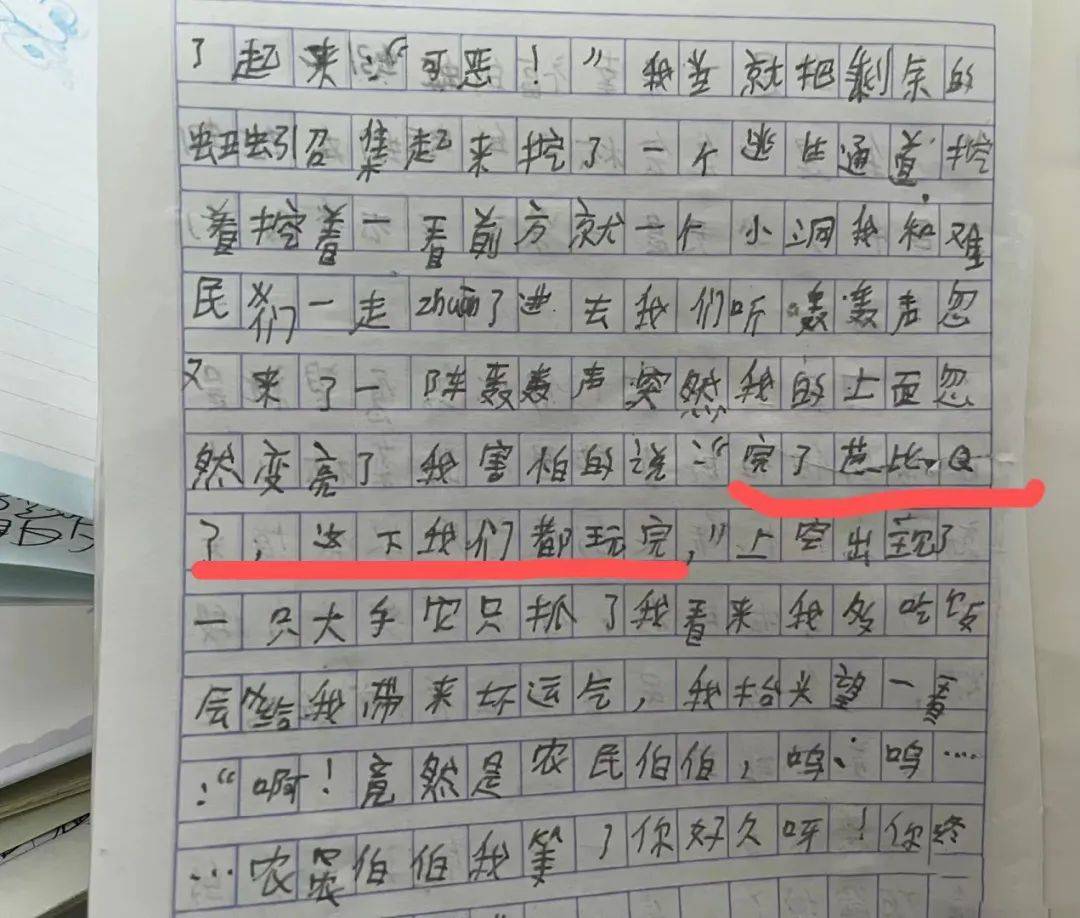 了起来:“可恶！”我并就把剩余的
蚯蚓召集起来挖了一个逃生通道.挖
着挖着一看前方就一个小洞我和难
民们一走zhuān了进去我们听轰轰声忽
又来了一阵轰轰声突然我的上面忽
然变亮了我害怕的说:“完了芭比Q
了，这下我们都玩完，”上空出现了
一只大手它只抓了我看来我多吃饭
会给我带来坏运气，我抬头望一看
:“啊！竟然是农民伯伯，呜、呜…
…农民伯伯我等了你好久呀！你终